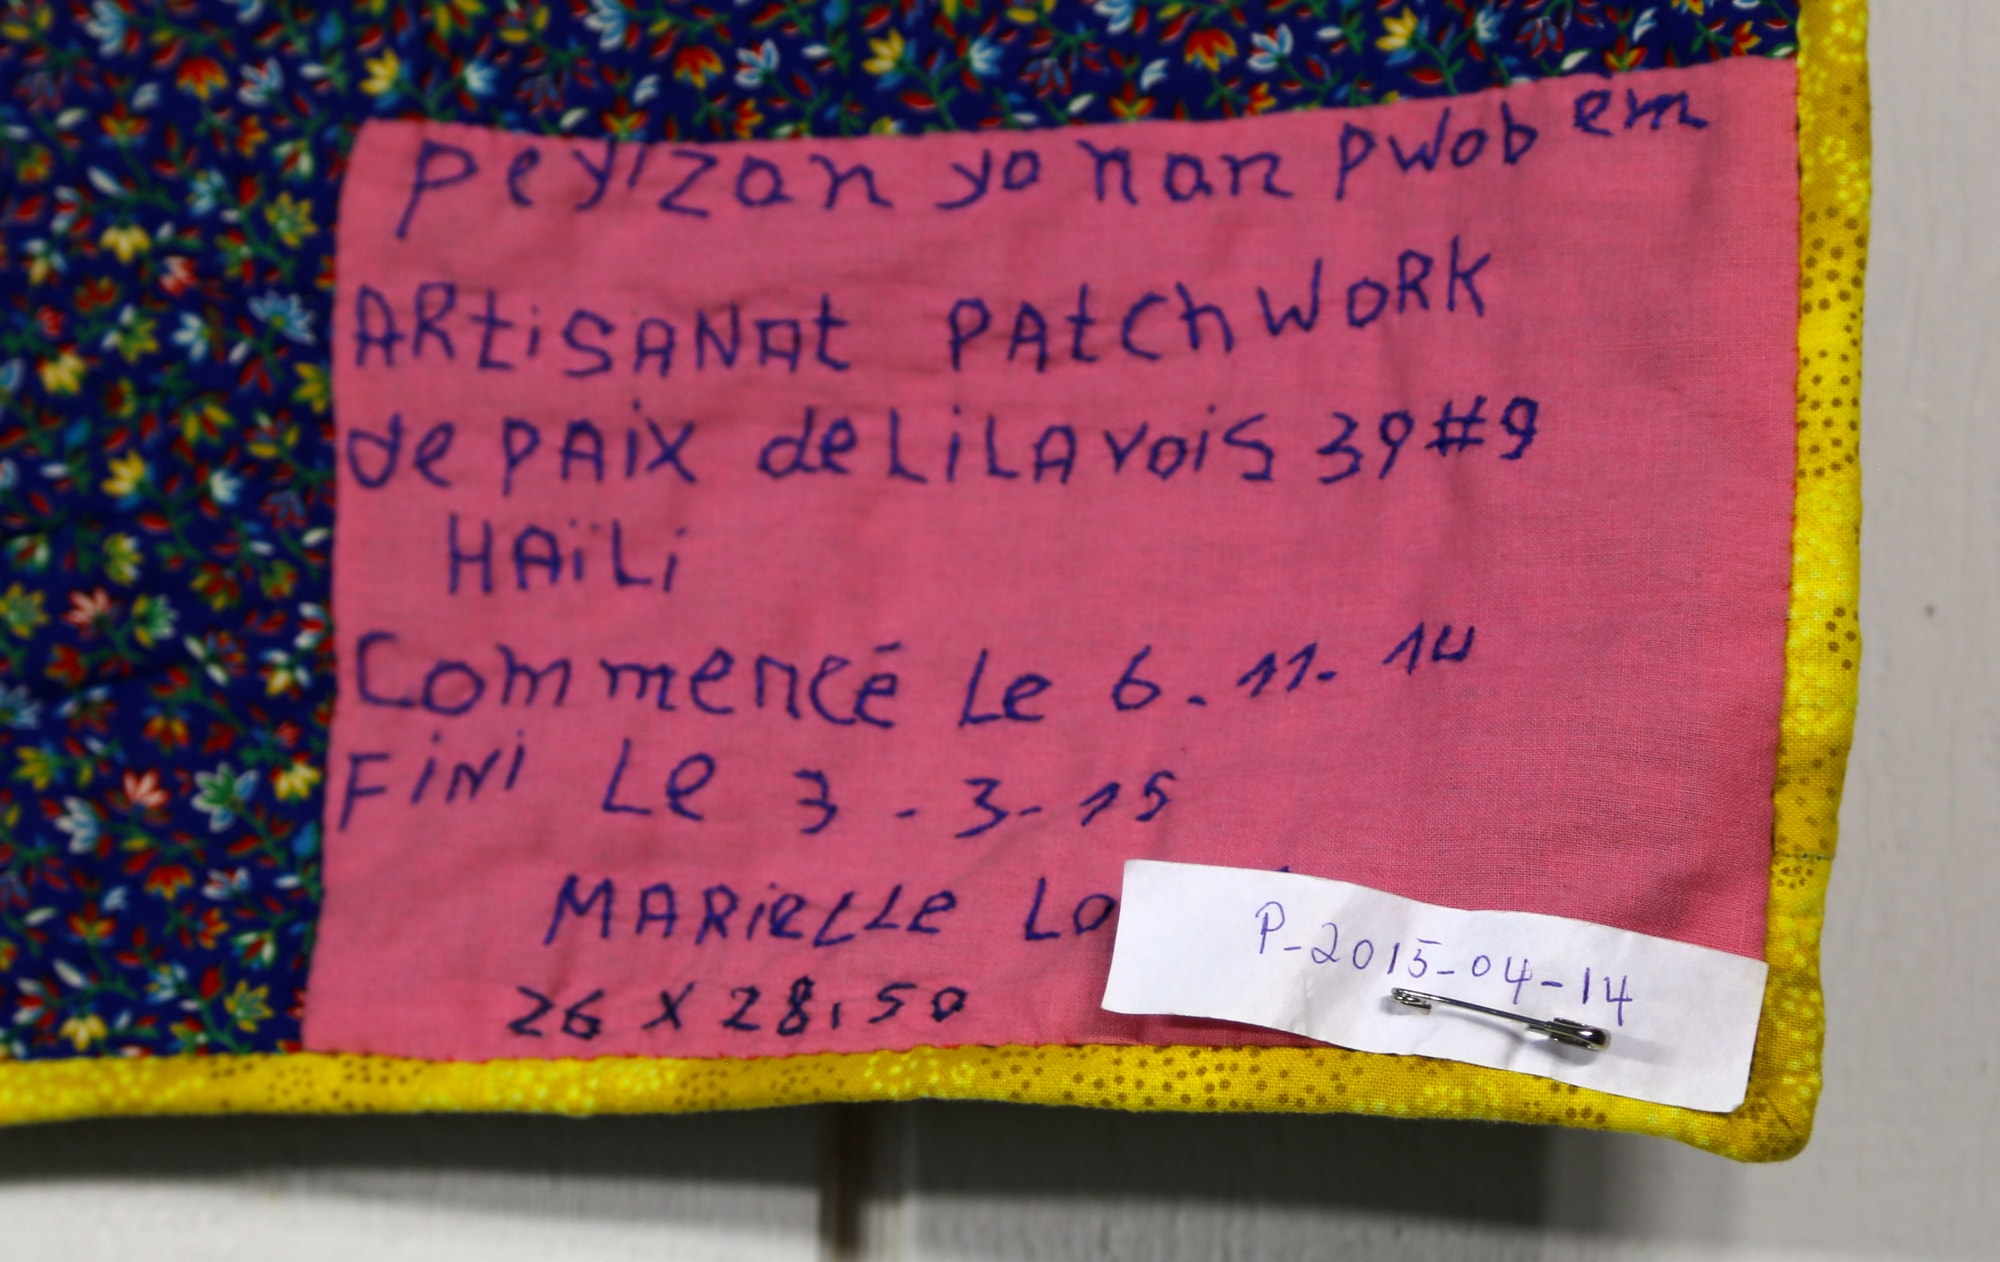 peyizan yo nan pwob em
ARtiSANAt PAtChWORK
de PAiX de LiLAVOiS 39#9
HAïLi
Commencé Le 6.11.14
FiNi Le 3.3-15
MARiELLe
26 X 28,50
P-2015-04-14